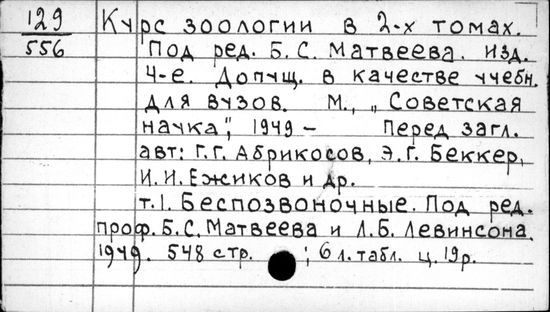 129 Курс зоологии в 2-х томах.
556 Под ред. Б.С. Матвеева. изд.
4-е. Допущ. в качестве учебн.
для вузов. М., „Советская
наука", 1949 – Перед загл.
авт: Г.Г. Абрикосов, Э.Г. Беккер,
И.И. Ежиков и др.
т.1. Беспозвоночные. Под ред.
проф. Б.С. Матвеева и Л.Б. Левинсона.
1949. 548 стр. ; 6 л. табл. ц. 19р.